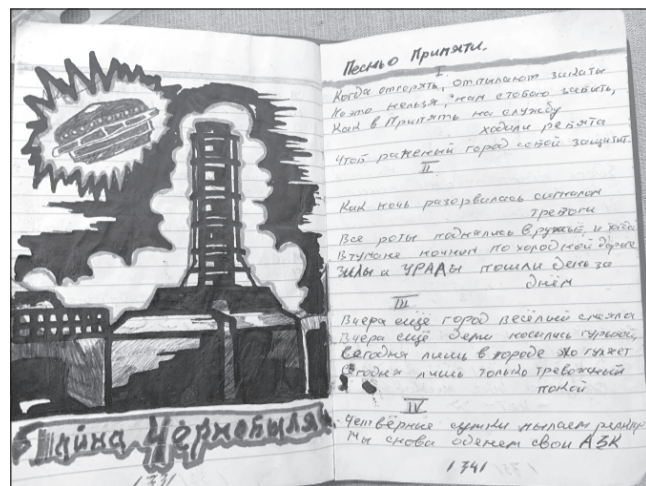 Тайна Чернобыля
1331
Песнь о Припяти.
I
Когда отгорят, отпылают закаты
нельзя, нам с тобою забыть,
Как в Припять на службу
ходили ребята
Чтоб город собой защитить.
II
Как ночь разорвалась сигналом
тревоги
Все роты поднялись в ружьё, и
В тумане ночном по холодной дороге
ЗИЛы и УРАЛы пошли день за
днём
III
Вчера ещё город весёлый
Вчера ещё дети носились гурьбой,
Сегодня лишь в городе эхо гуляет
Сегодня лишь только тревожный
покой
IV
Четвёртые сутки пылает реактор
Мы снова оденем свои АЗК
1341